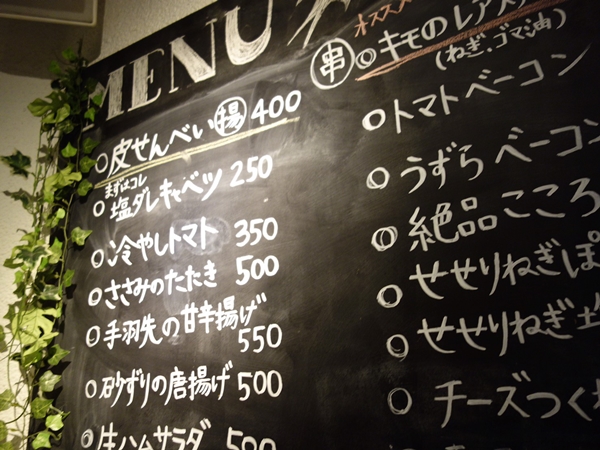 MENU
○皮せんべい揚 400
まずはコレ
○塩ダレキャベツ 250
○冷やしトマト 350
○ささみのたたき 500
○手羽先の甘辛揚げ
550
○砂ずりの唐揚げ 500
○生ハムサラダ 500
オススメ
串 ○キモのレア
(ねぎ、ゴマ油)
○トマトベーコン
○うずらベーコン
○絶品こころ
○せせりねぎぽ
○せせりねぎ
○チーズつくね